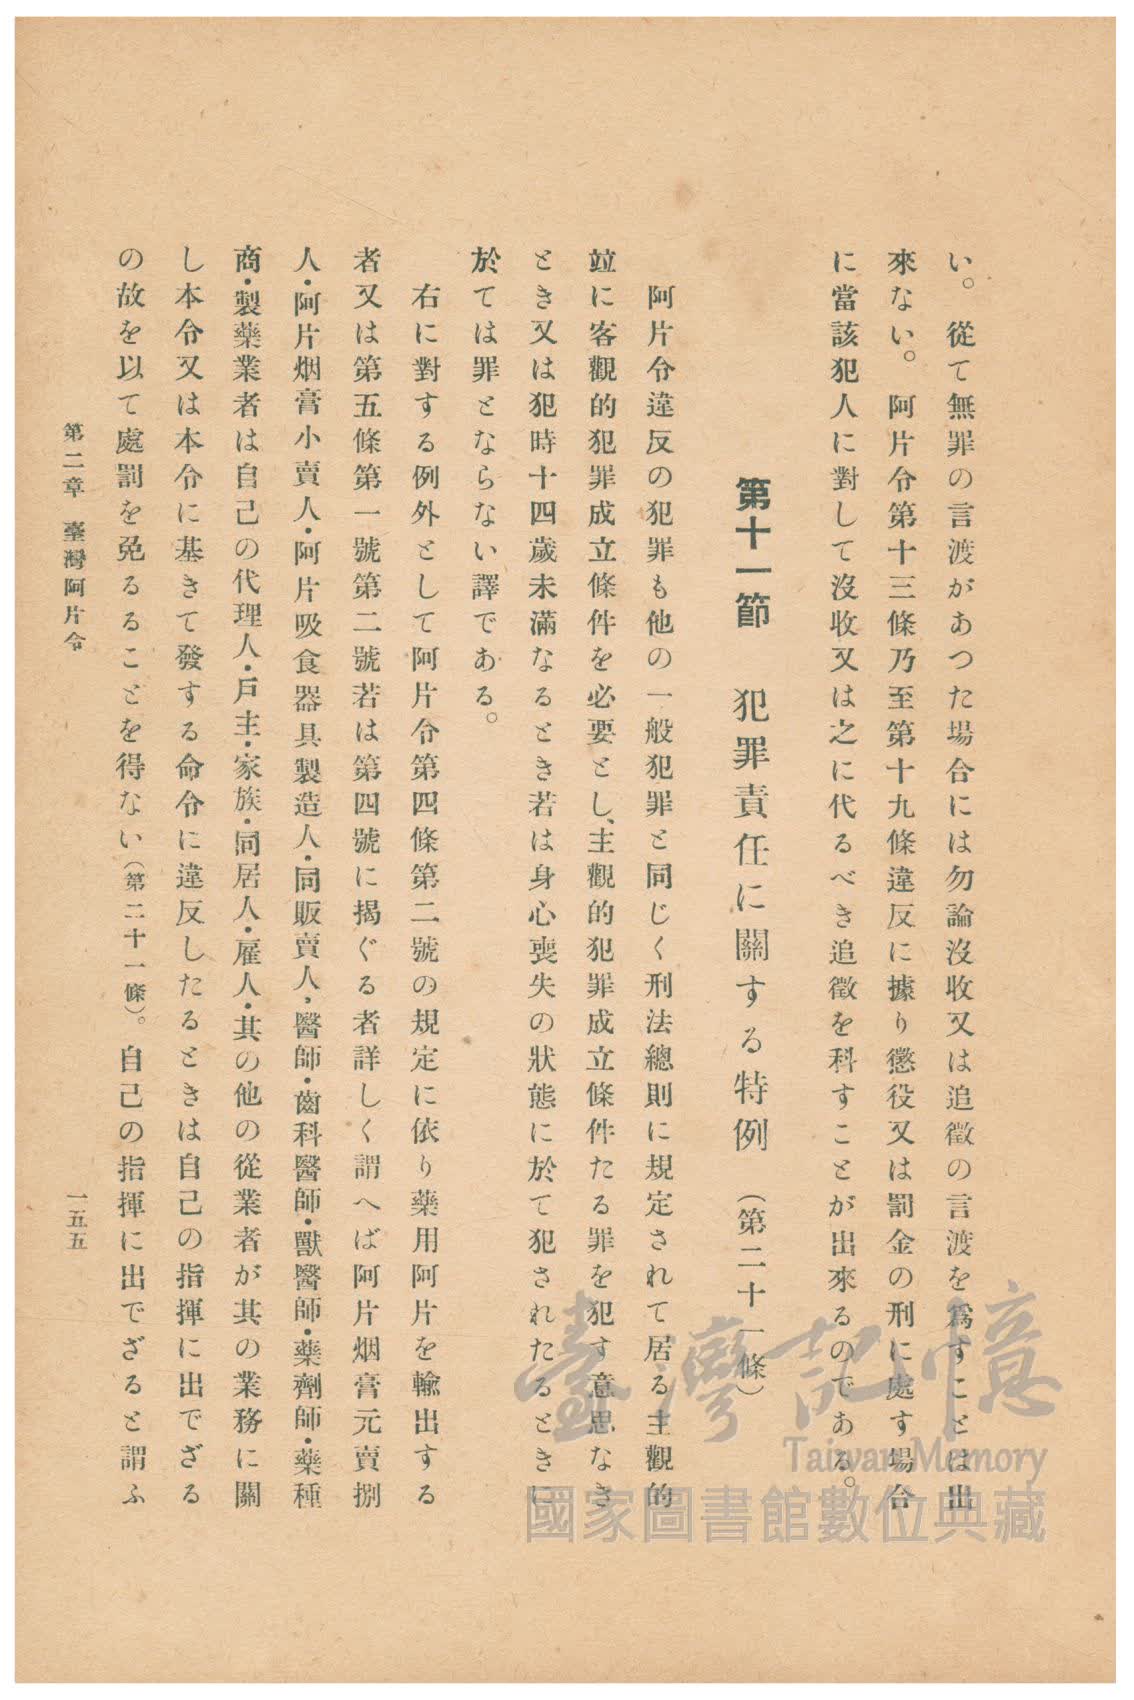 い。從て無罪の言渡があつた場合には勿論沒收又は追徵の言渡を爲すことは出
來ない。阿片令第十三條乃至第十九條違反に據り懲役又は罰金の刑に處す場合
に當該犯人に對して沒收又は之に代るべき追徵を科すことが出來るのである。
第十一節 犯罪責任に關する特例 (第二十一條)
阿片令違反の犯罪も他の一般犯罪と同じく刑法總則に規定されて居る主觀的
竝に客觀的犯罪成立條件を必要とし、主觀的犯罪成立條件たる罪を犯す意思なき
とき又は犯時十四歲未滿なるとき若は身心喪失の狀態に於て犯されたるときに
於ては罪とならない譯である。
右に對する例外として阿片令第四條第二號の規定に依り藥用阿片を輸出する
者又は第五條第一號第二號若は第四號に揭ぐる者詳しく謂へば阿片烟膏元賣捌
人・阿片烟膏小賣人・阿片吸食器具製造人・同販賣人，醫師・齒科醫師・獸醫師・藥劑師・藥種
商・製藥業者は自己の代理人・戶主・家族・同居人・雇人・其の他の從業者が其の業務に關
し本令又は本令に基きて發する命令に違反したるときは自己の指揮に出でざる
の故を以て處罰を免るることを得ない(第二十一條)。自己の指揮に出でざると謂ふ
第二章 臺灣阿片令
一五五
臺灣記憶
Taiwan Memory
國家圖書館數位典藏